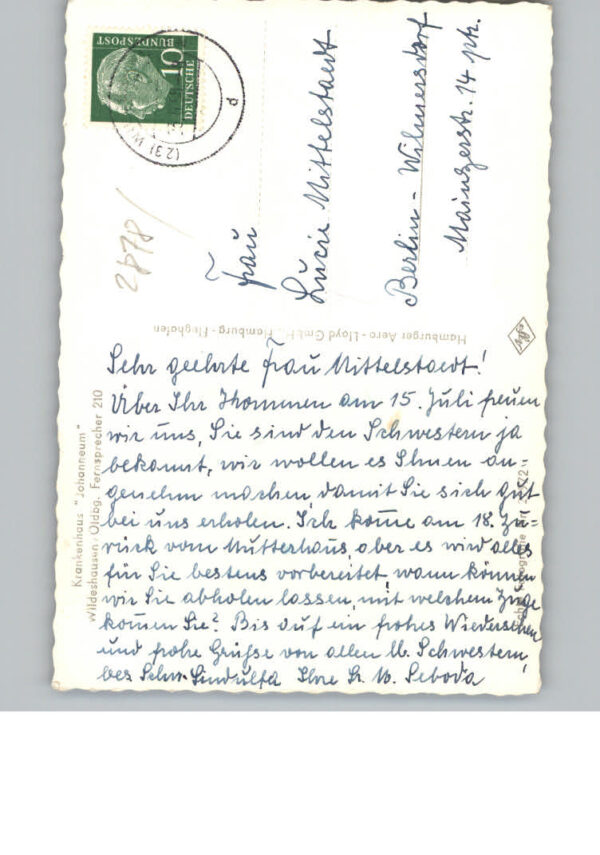 10
DEUTSCHE
BUNDESPOST
(23) W
d
2878/
Frau
Lucie Mittelstaedt
Berlin-Wilmersdorf
Mainzerstr. 14 ptr.
Hamburger Aero-Lloyd GmbH., Hamburg-Flughafen
Krankenhaus "Johanneum"
Wildeshausen, Oldbg. Fernsprecher 210
Sehr geehrte Frau Mittelstaedt!
Über Ihr Kommen am 15. Juli freuen
wir uns, Sie sind den Schwestern ja
bekannt, wir wollen es Ihnen an-
genehm machen damit Sie sich gut
bei uns erholen. Ich kome am 18. zu=
rück vom Mutterhaus, aber es wird alles
für Sie bestens vorbereitet, wann können
wir Sie abholen lassen, mit welchem Zuge
komen Sie? Bis auf ein frohes Wiedersehen
und frohe Grüße von allen lb. Schwestern,
bes Schw. Sindulfa Ihre Sr. M.